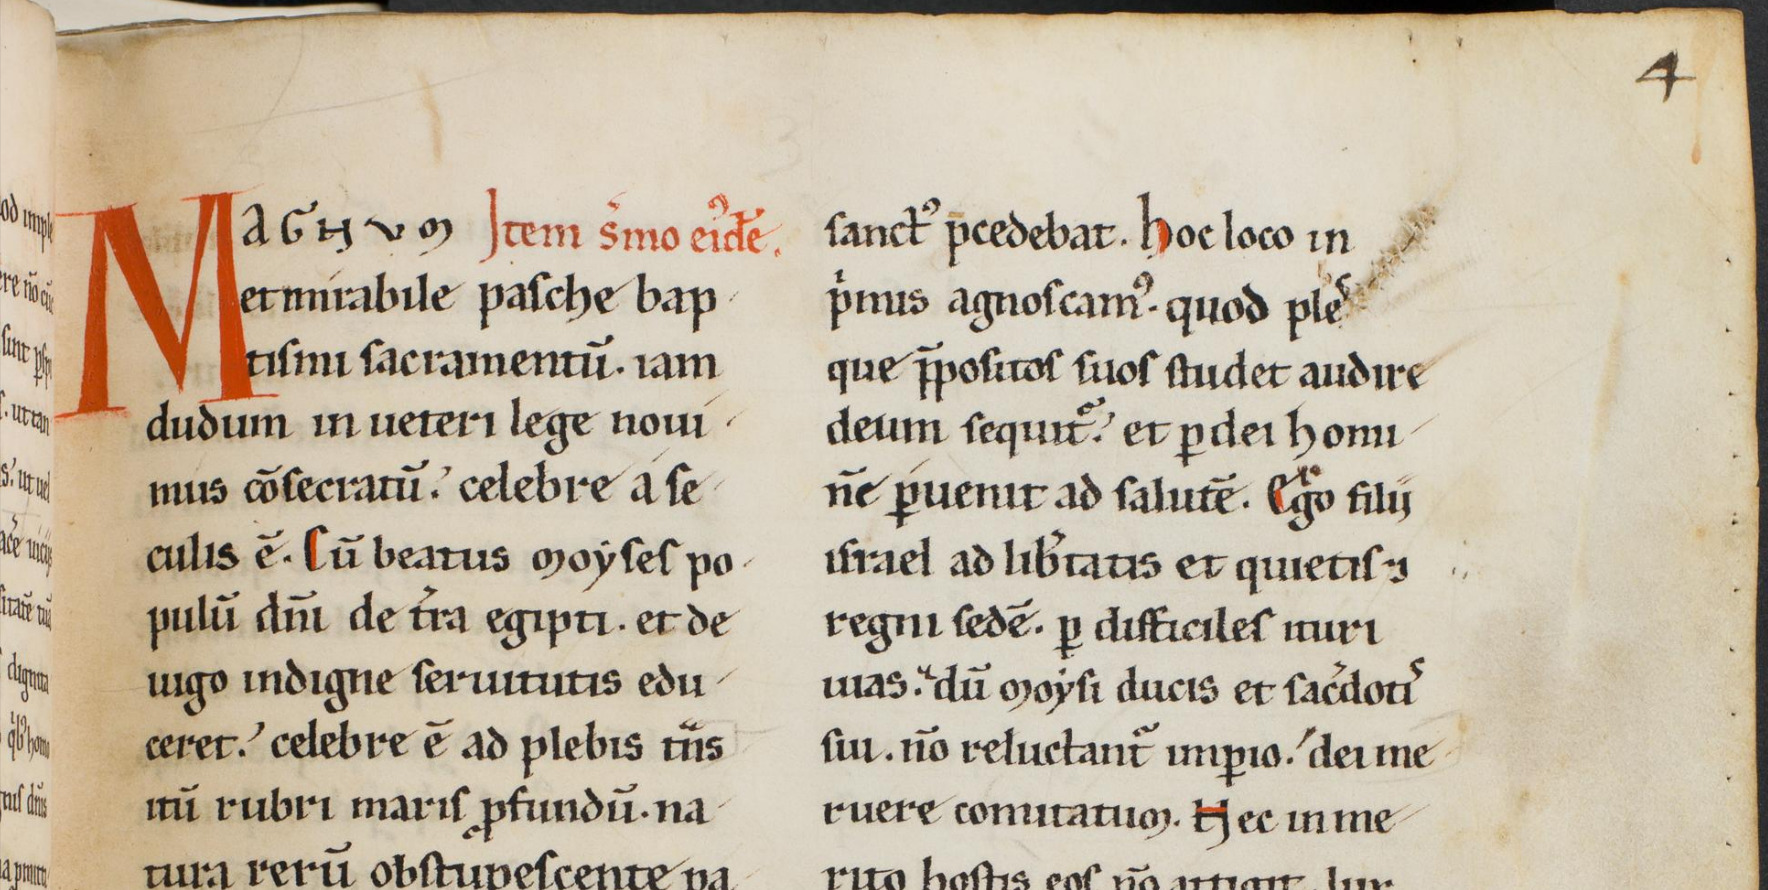 4
MAGNUM Item s̄mo eiꝰdē.
et mirabile pasche bap
tismi sacramentū. iam
dudum in ueteri lege noui
mus cōsecratū. celebre a se
culis ē. Cū beatus moẏses po
pulū dn̄i de t̄ra egipti. et de
iugo indigne seruitutis edu
ceret. celebre ē ad plebis tn̄s
itū rubri maris ꝓfundū. na
tura rerū obstupescente pa
sanctꝰ p̄cedebat. Hoc loco in
pͥmis agnoscamꝰ. quod ples
que p̄positos suos studet audire
deum sequit᷑. et ꝑ dei homi
nē ꝑuenit ad salutē. Ergo filii
israel ad lib̄tatis et quietis ⁊
regni sedē. ꝑ difficiles ituri
uias. dū moẏsi ducis et sac̄dotis
sui. nō reluctant᷑ imꝑio. dei me
ruere comitatum. Hec in me
rito hostis eos nō attigit. lux